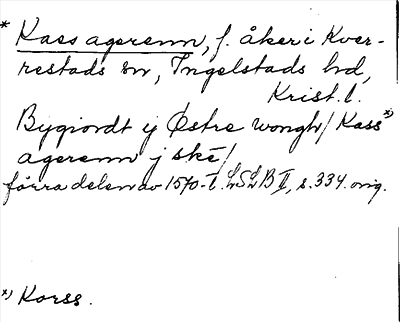 * Kass agerenn, f. åker i Kver-
restads sn, Ingelstads hd,
Krist. l.
Bygiordt ij Østre wongh/ Kass *)
agerenn j skē/
förra delen av 1570-t. LSLB II, s. 334. orig.
*) Korss.